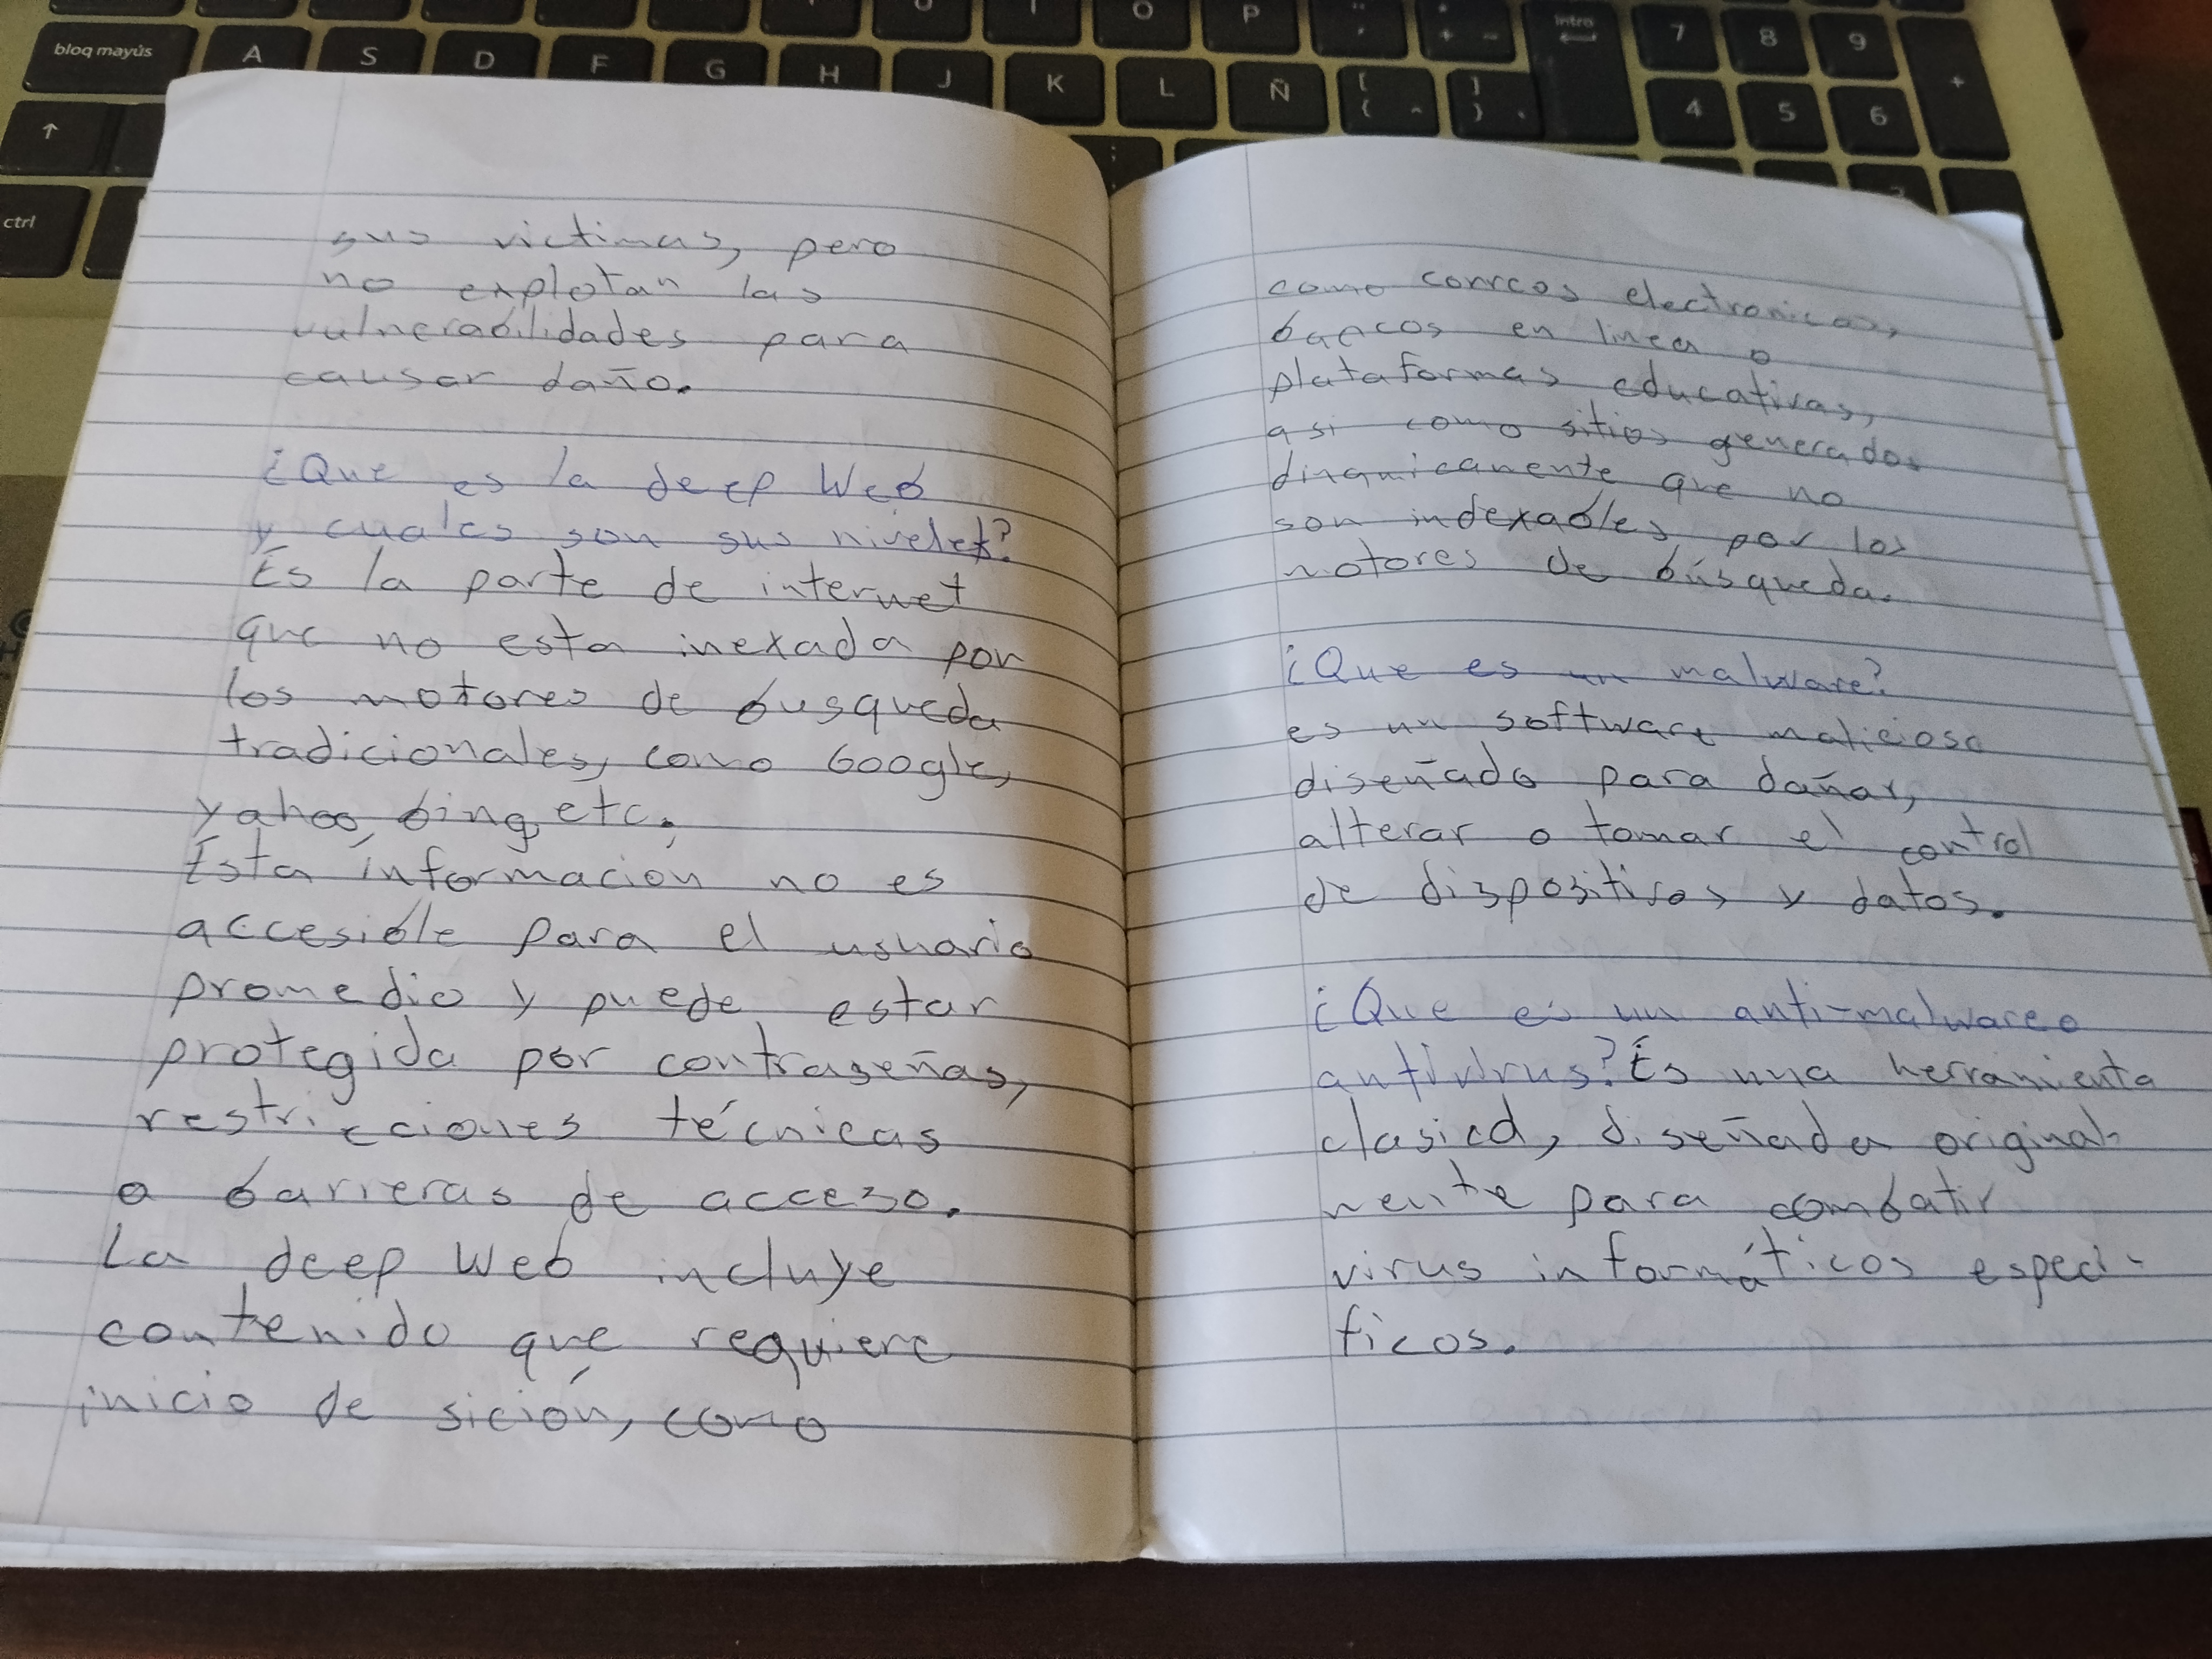 bloq mayús
A S D F G H J K L Ñ
O P
intro
7 8 9
+
4 5 6
ctrl
sus victimas, pero
no explotan las
vulnerabilidades para
causar daño.
¿Que es la deep Web
y cuales son sus niveles?
Es la parte de internet
que no esta inexada por
los motores de busqueda
tradicionales, como Google,
yahoo, bing, etc.
Esta información no es
accesible para el usuario
promedio y puede estar
protegida por contraseñas,
restricciones técnicas
o barreras de acceso.
La deep Web incluye
contenido que requiere
inicio de sición, como
como correos electronicos,
bancos en linea o
plataformas educativas,
asi como sitios generados
dinamicamente que no
son indexables por los
motores de búsqueda.
¿Que es un malware?
es un software malicioso
diseñado para dañar,
alterar o tomar el control
de dispositivos y datos.
¿Que es un anti-malware o
antivirus? Es una herramienta
clasica, diseñada original-
mente para combatir
virus informáticos especi-
ficos.